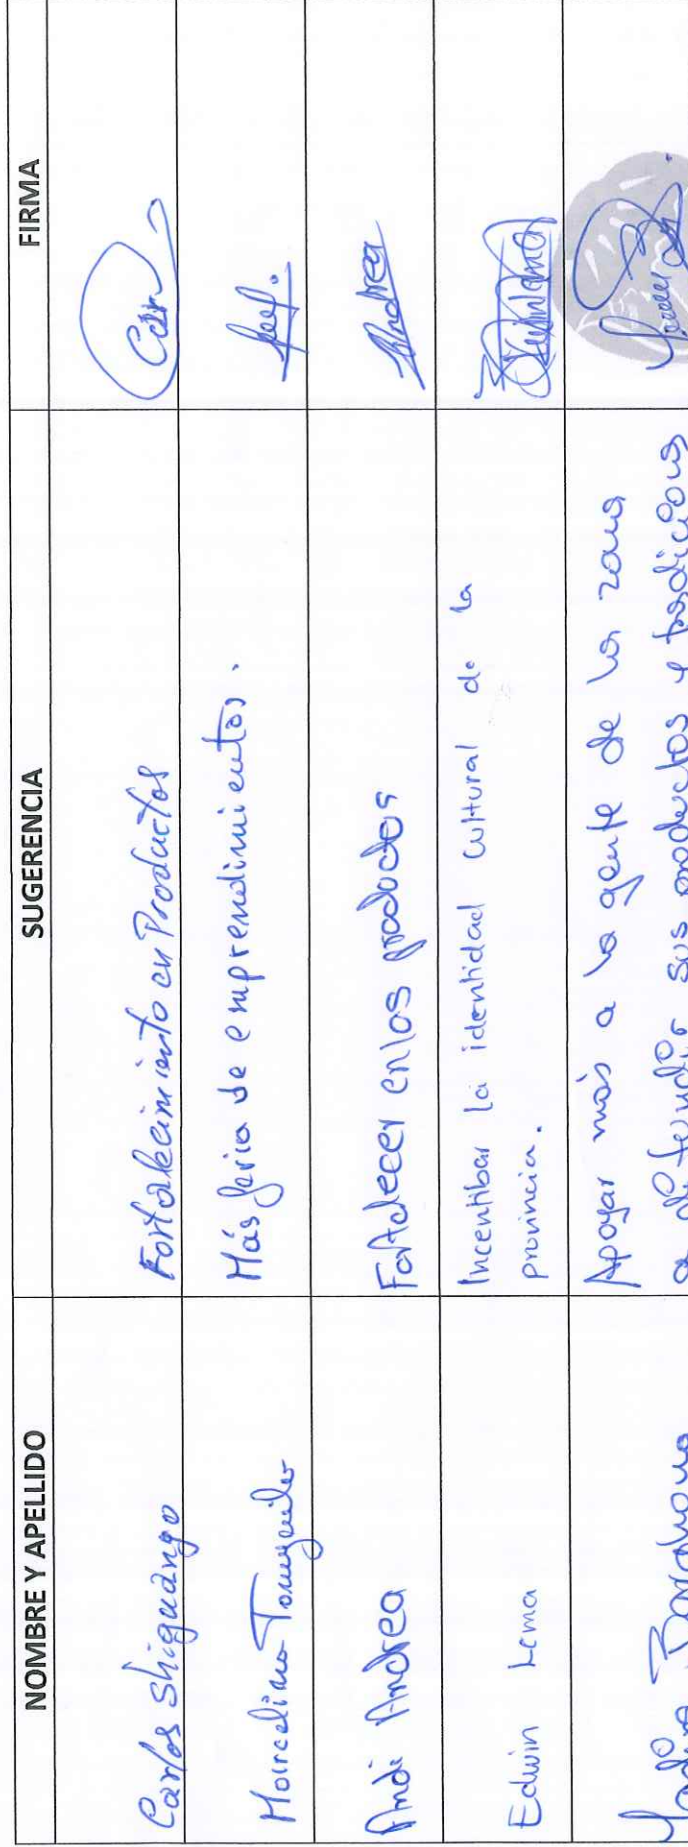 NOMBRE Y APELLIDO SUGERENCIA FIRMA
Carlos Shiguango Fortalecimiento en Productos Car
Más feria de emprendimientos.
Andi Andrea Fortalecer en los productos Andrea
Edwin Lema Incentibar la identidad cultural de la
provincia.
Apoyar más a la gente de la zona
sus productos y